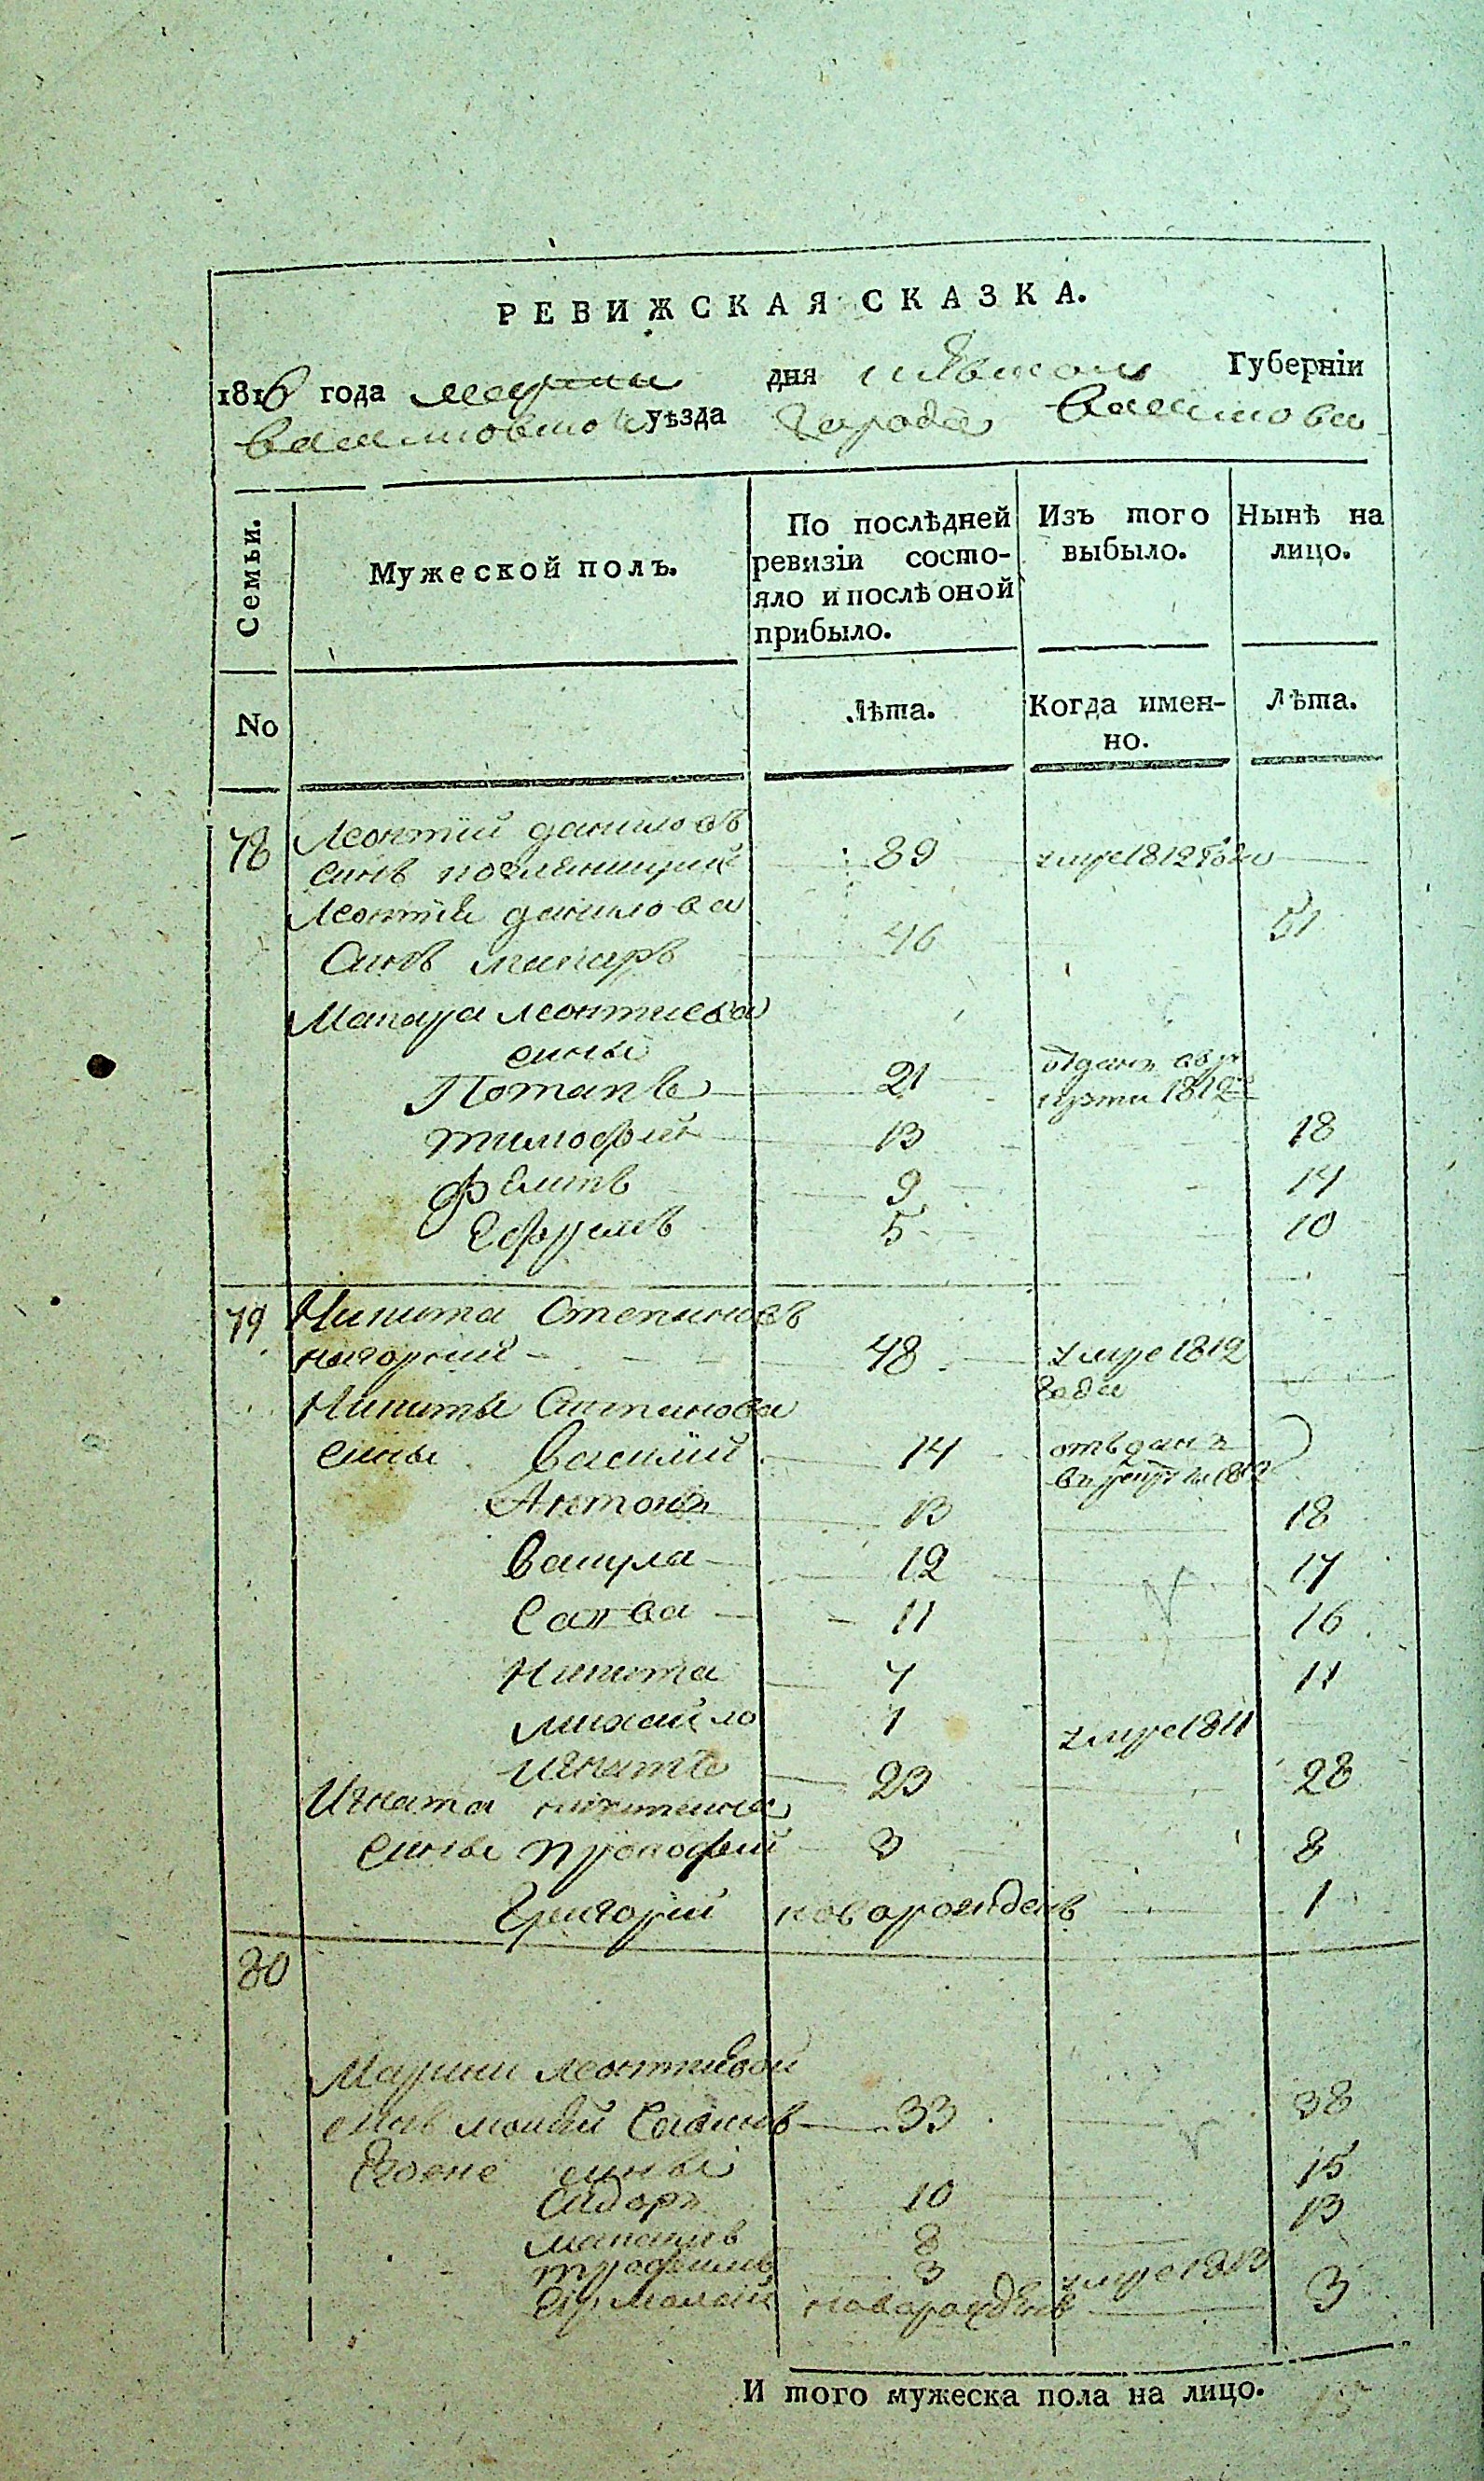 РЕВИЖСКАЯ СКАЗКА.
1816 года марта дня Кіевской Губерніи
Васильковского уѣзда города Василькова
Семьи. Мужеской полъ. По послѣдней ревизіи состояло и послѣ оной прибыло. Изъ того выбыло. Нынѣ на лицо.
No Лѣта. Когда именно. Лѣта.
78 Леонтій даниловъ
синъ 89 умре 1812 года
Леонтія данилова
Синъ макаръ 46 51
Макара леонтиева
сины
Потапъ 21 отданъ въ рекруты 1812
тимофей 13 18
Филипъ 9 14
Ефремъ 5 10
79 Никита Степановъ
нагорний 48 умре 1812
года
Никиты Степанова
сины Василій 14 отъданъ
в рекруты 1812
Антонъ 13 18
Вакула 12 17
Савва 11 16
Никита 7 11
михайло 1 умре 1811
Игнатъ 23 28
Игната никитина
сины прокофей 3 8
Григорій новорожденъ 1
80
Марини леонтиевой
синъ 33 38
сины
Сидоръ 10 15
8 13
трофимъ 3 умре 1813
Ермолай новорожденъ 3
И того мужеска пола на лицо. 15